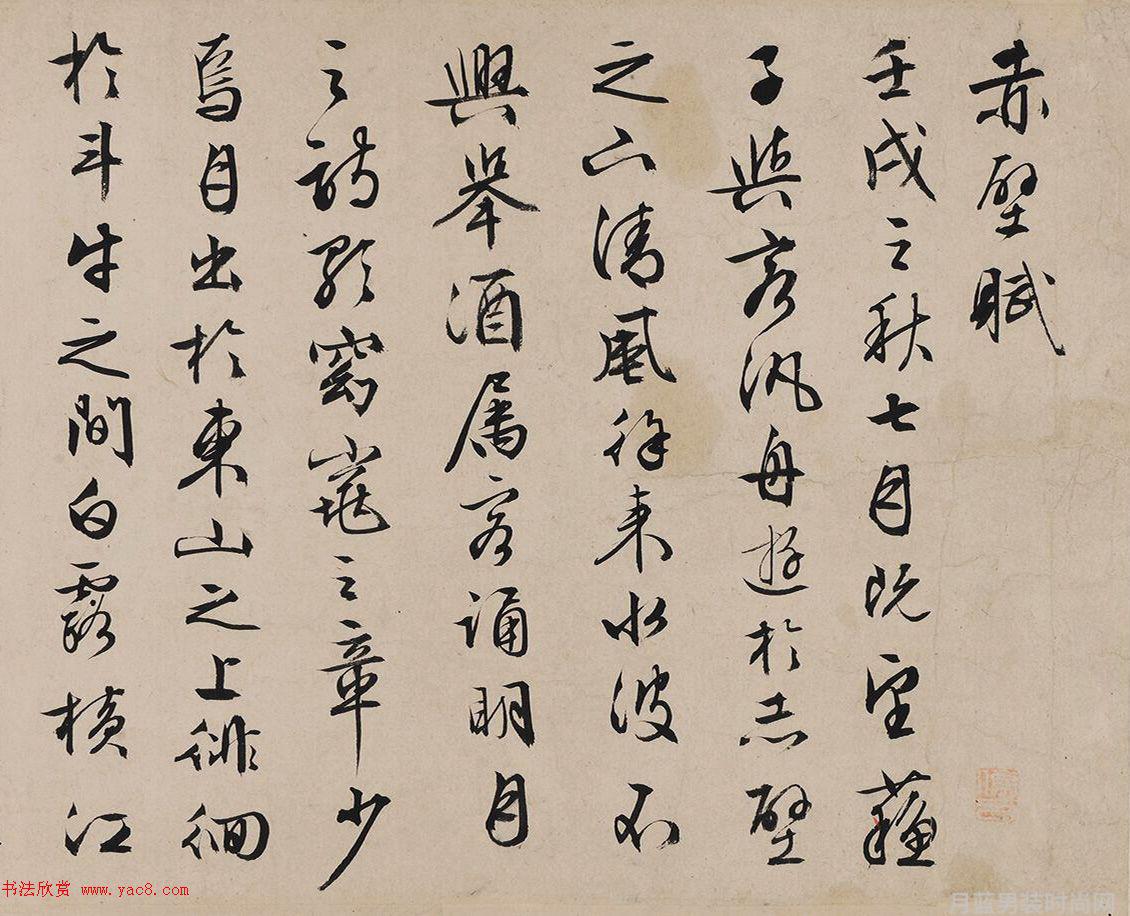 赤壁賦
壬戌之秋七月既望蘇
子與客汎舟遊於赤壁
之下清風徐來水波不
興舉酒属客誦明月
之詩歌窈窕之章少
焉月出於東山之上徘徊
於斗牛之間白露橫江
书法欣赏 www.yac8.com
月蓝男装时尚网